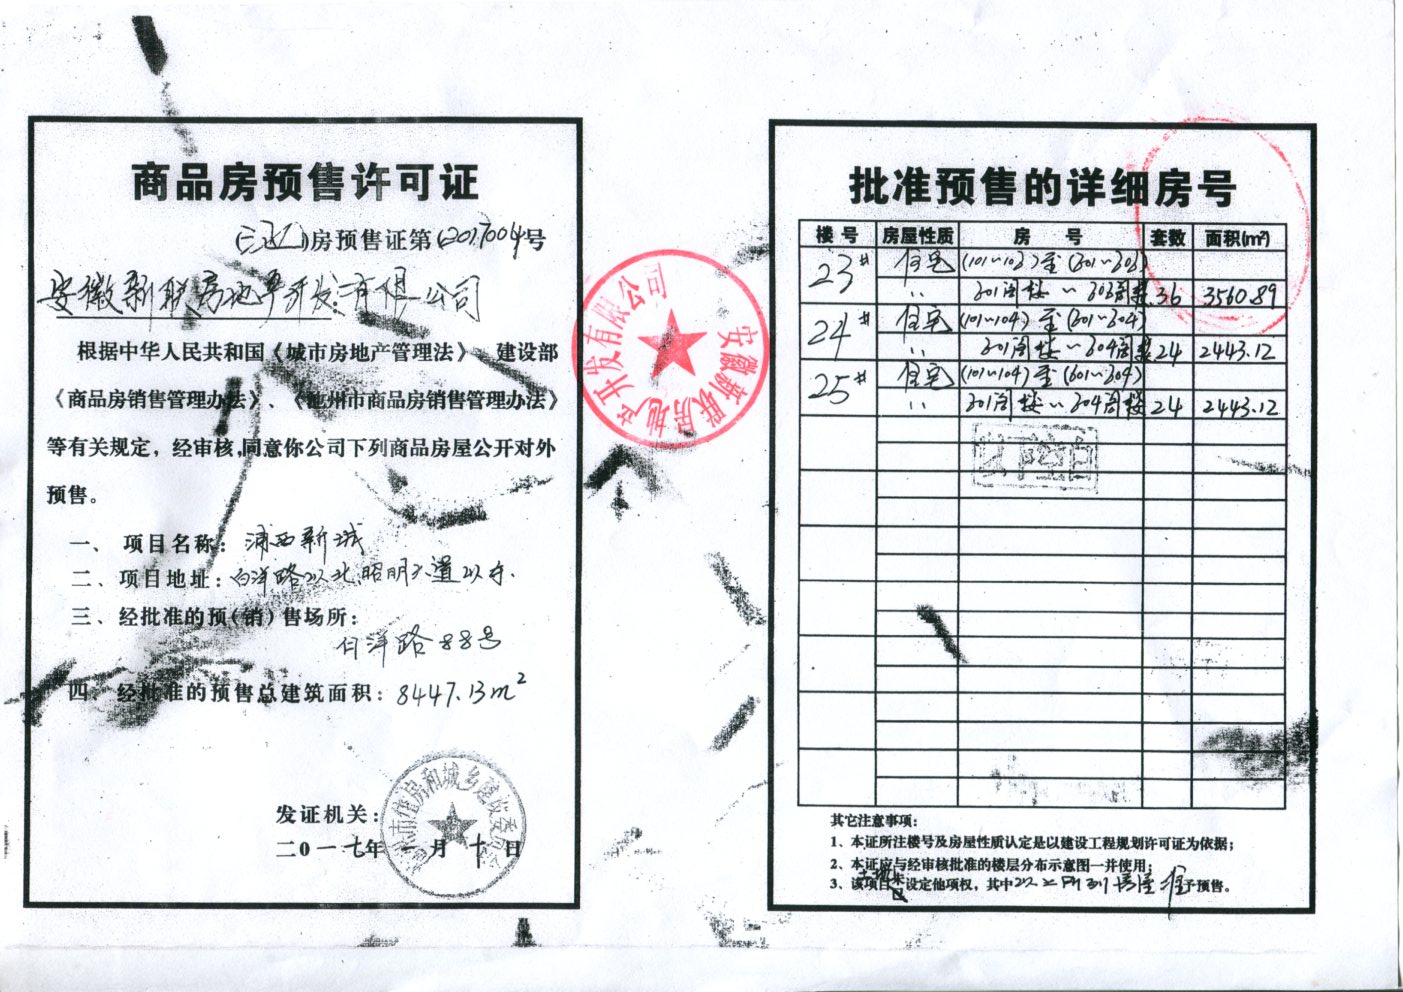 商品房预售许可证
房预售证第(2017004号
安徽新联房地产开发有限公司
根据中华人民共和国《城市房地产管理法》、建设部
《商品房销售管理办法》、《池州市商品房销售管理办法》
等有关规定，经审核,同意你公司下列商品房屋公开对外
预售。
一、项目名称：浦西新城
二、项目地址：白洋路以北昭明大道以东.
三、经批准的预(销)售场所：
白洋路88号
四 经批准的预售总建筑面积：8447.13m²
发证机关：
市住房和城乡建设委员会
二0一七年一月十日
安徽新联房地产开发有限公司
批准预售的详细房号
楼号 房屋性质 房号 套数 面积(m²)
23# 住宅 (101~103)至
36 3560.89
24# 住宅 (101~104)至
24 2443.12
25# 住宅 (101~104)至
24 2443.12
其它注意事项：
1、本证所注楼号及房屋性质认定是以建设工程规划许可证为依据；
2、本证应与经审核批准的楼层分布示意图一并使用；
3、该项目土地未设定他项权，其中以上所列房屋准予预售。